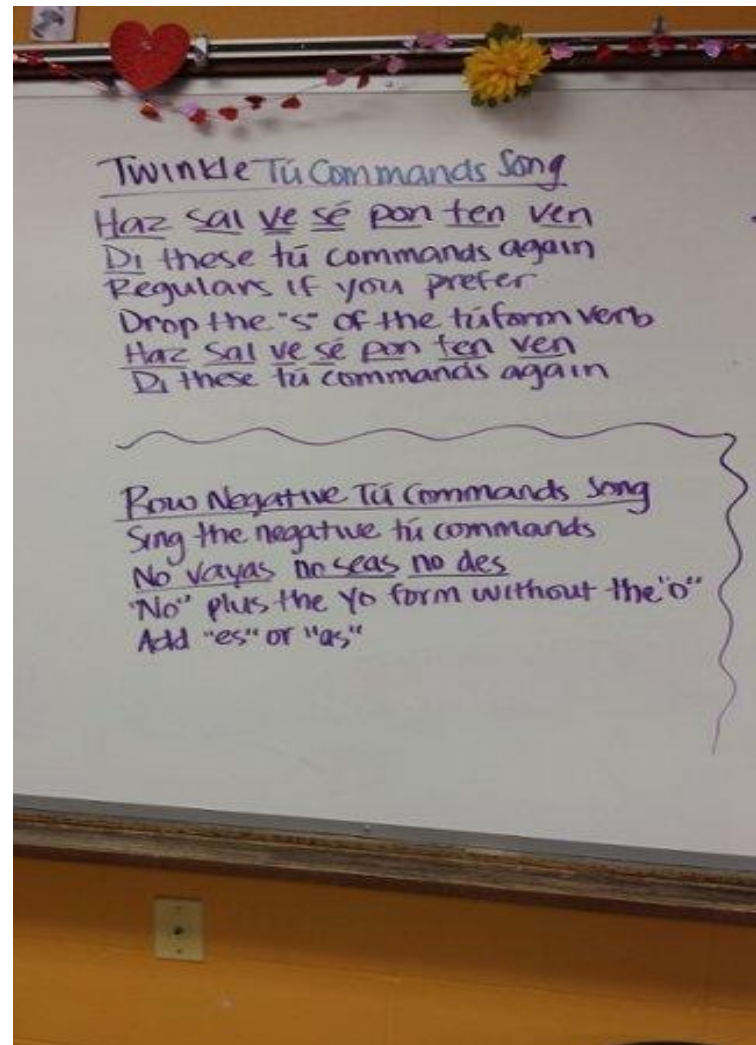 Twinkle Tú Commands Song
Haz sal ve sé pon ten ven
Di these tú commands again
Regulars if you prefer
Drop the "s" of the tú form verb
Haz sal ve sé pon ten ven
Di these tú commands again
Row Negative Tú Commands Song
Sing the negative tú commands
No vayas no seas no des
"No" plus the yo form without the "o"
Add "es" or "as"